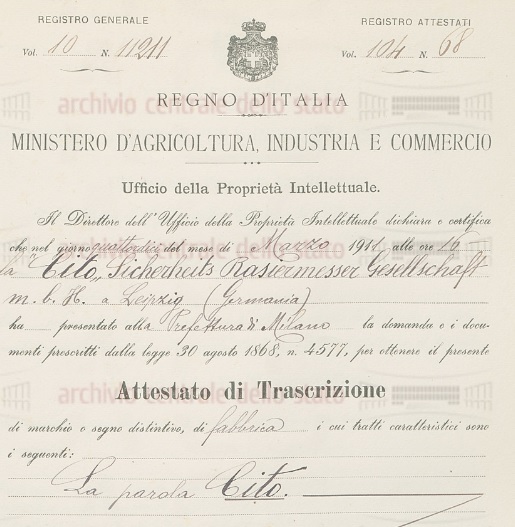 REGISTRO GENERALE
REGISTRO ATTESTATI
Vol. 10 N. 11211
Vol. 104 N. 68
archivio centrale dello stato
REGNO D'ITALIA
MINISTERO D'AGRICOLTURA, INDUSTRIA E COMMERCIO
Ufficio della Proprietà Intellettuale.
Il Direttore dell'Ufficio della Proprietà Intellettuale dichiara e certifica
che nel giorno quattordici del mese di Marzo 1911 alle ore 16
la "Cito" Sicherheits Rasiermesser Gesellschaft
m. b. H. a Leipzig (Germania)
ha presentato alla Prefettura di Milano la domanda e i docu-
menti prescritti dalla legge 30 agosto 1868, n. 4577, per ottenere il presente
Attestato di Trascrizione
archivio centrale dello stato
di marchio o segno distintivo, di fabbrica i cui tratti caratteristici sono
i seguenti:
La parola Cito.